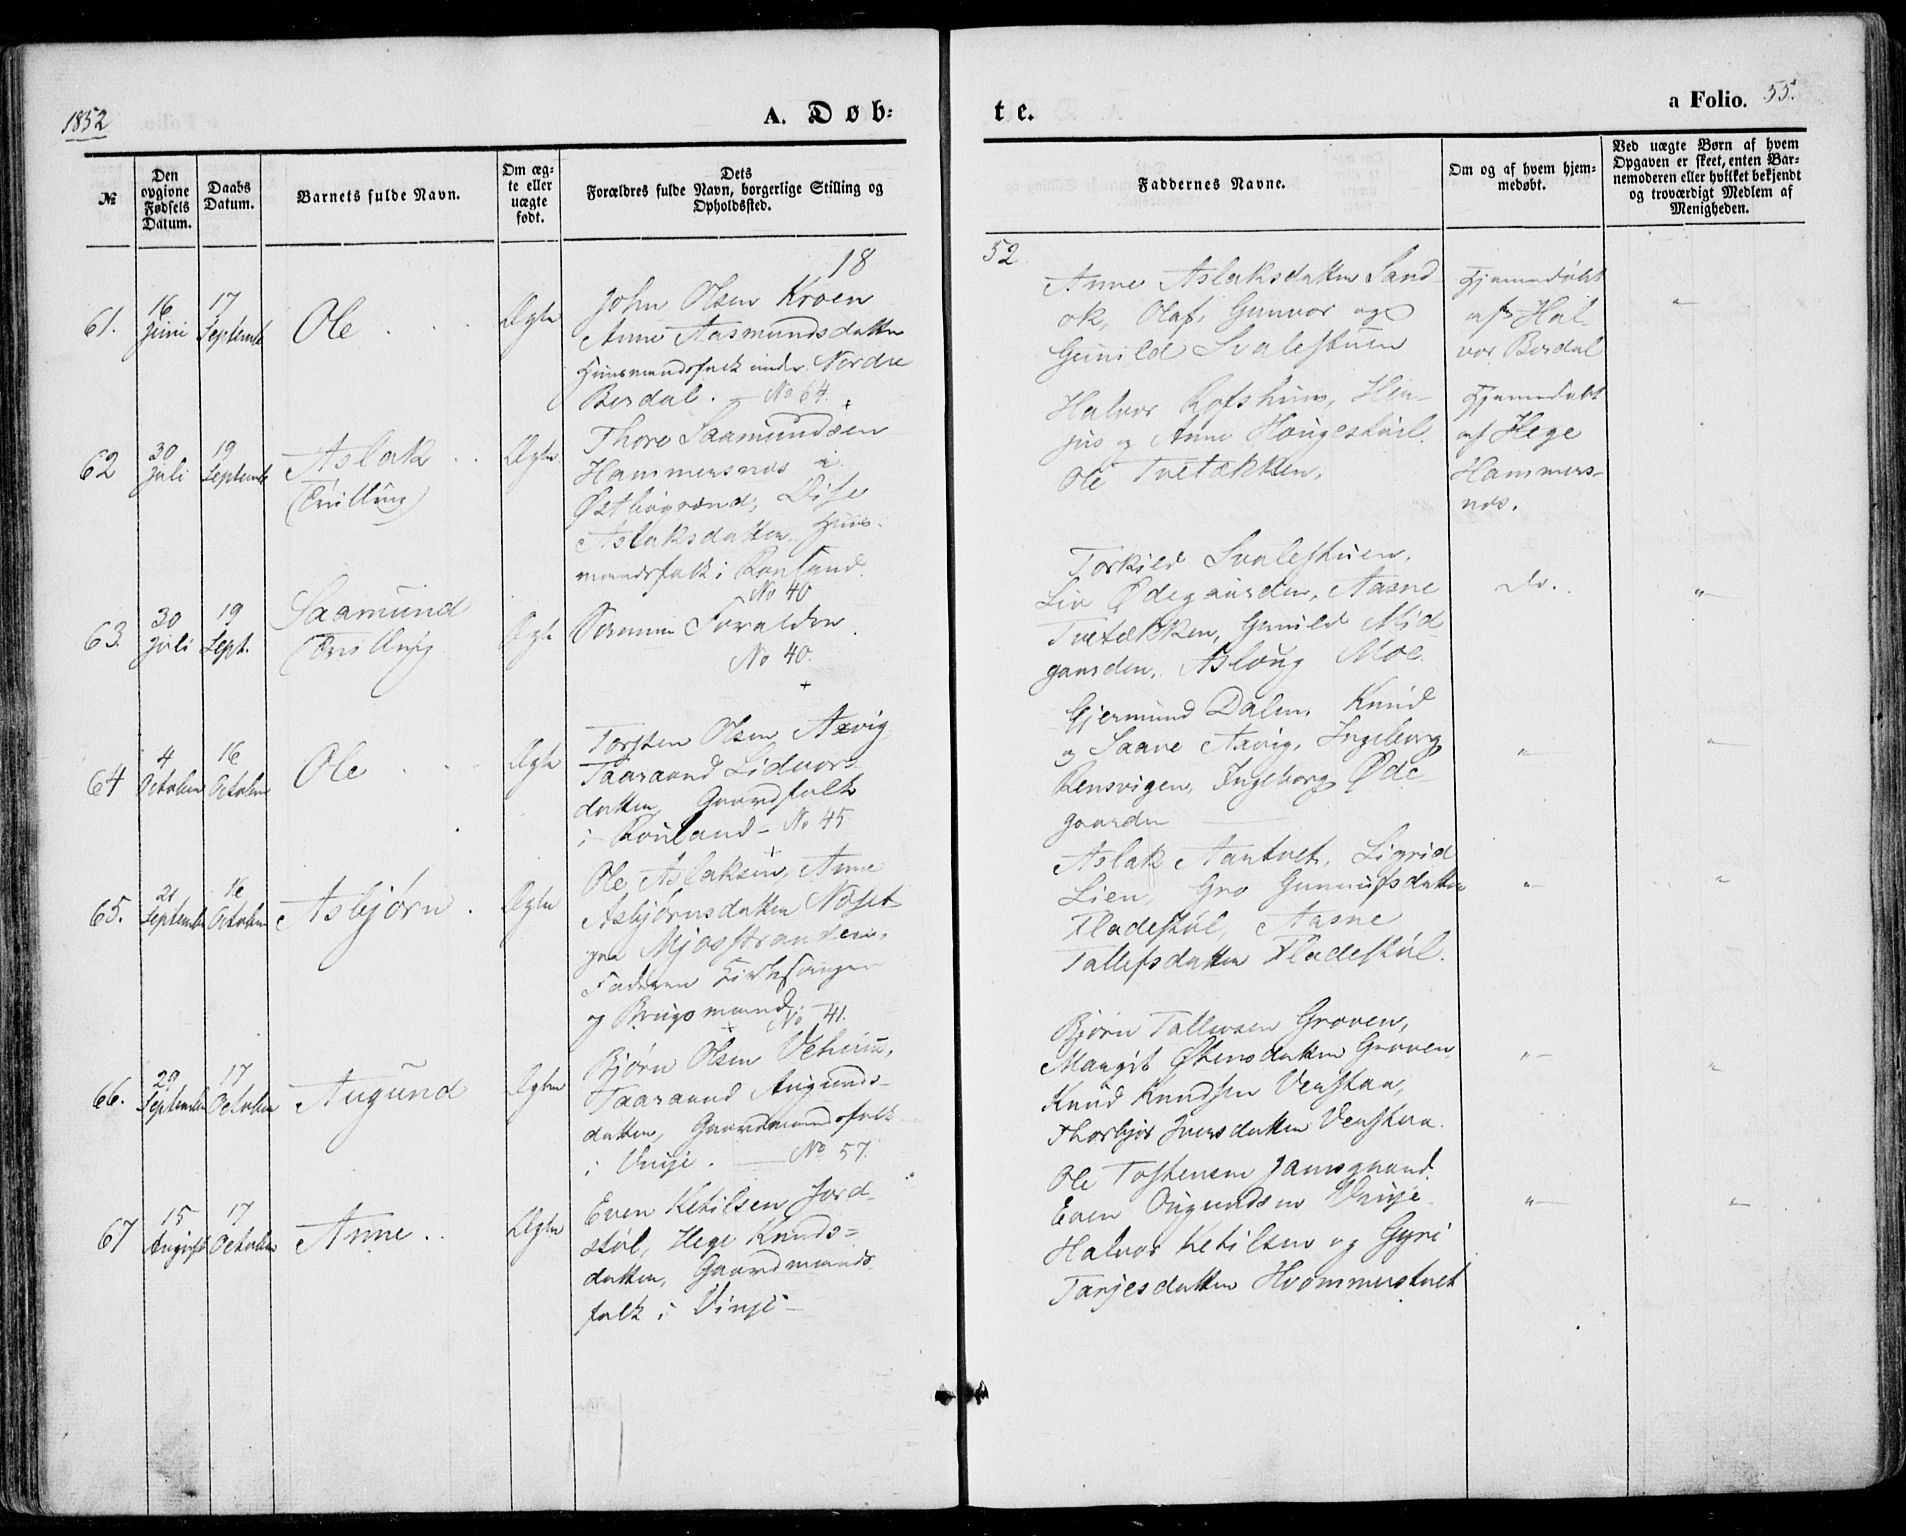 1852
A. Døb:
te.
a Folio. 55.
№
Den opgivne Fødsels Datum.
Daabs Datum.
Barnets fulde Navn.
Om ægte eller uægte født.
Dets Forældres fulde Navn, borgerlige Stilling og Opholdssted.
Faddernes Navne.
Om og af hvem hjemmedøbt.
Ved uægte Børn af hvem Opgaven er skeet, enten Barnemoderen eller hvilket bekjendt og troværdigt Medlem af Menigheden.
18
52
61.
16 Juni
17 Septembr
Ole
Ægte
John Olsen Kroen
Anne Aasmundsdatter
Huusmandsfolk under Nordre
Bordal. — No 64.
Anne Aslaksdatter Sand-
ok, Olaf, Gunvor og
Gunild Svalestuen
Hjemmedøbt
af Hal-
vor Bordal
"
62
30 Juli
19 Septembr
Aslak
(Tvilling)
Ægte
Thore Saamundsen
Hammersnos i
Østbøgrend, Dise
Aslaksdatter. Huus-
mandsfolk i Rauland.
No 40
Halvor Rofshuus, Hen-
jus og Anne Hougestøil.
Ole Tvetækken.
Hjemmedøbt
af Hege
Hammers-
nos.
63.
30 Juli
19 Sept.
Saamund
(Tvilling
Ægte
Samme Forældre.
No 40.
Torkild Svalestuen.
Liv Ødegaarden, Aasne
Tvetækken, Gunild Mid-
gaarden, Aslaug Moe.
Do.
"
64
4 October
16 October
Ole
Ægte
Torsten Olsen Axvig
Taaraand Lidvors-
datter, Gaardfolk
i Rauland — No 45
Gjermund Dalen. Knud
og Saave Axvig, Ingeborg
Rensvigen, Ingeborg Øde-
gaarden
"
"
65.
21 September
16 October
Asbjørn.
Ægte
Ole Aslaksen, Anne
Asbjørnsdatter Noset
paa Mjøsstranden.
Faderen Kirkesanger
og Brugsmand
No 41.
Aslak Aantvet, Sigrid
Lien, Gro Gunnufsdatter
Fladestøl, Aasne
Tallefsdatter Fladestøl.
"
"
66.
29 September
17 October
Augund
Ægte
Bjørn Olsen Vehuus,
Taaraand Augunds-
datter, Gaardmandsfolk
i Vinje. — No 57.
Bjørn Tallevsen Groven,
Margit Østensdatter Groven
Knud Knudsen Venstaa,
Thorbjør Iversdatter Venstaa.
"
"
67
15 August
17 October
Anne
Ægte
Even Ketilsen Jord-
støl, Hege Knuds-
datter, Gaardmands-
folk i Vinje —
Ole Tostensen Jamsgaard.
Even Ougundsen Vinje
Halvor Ketilsen og Gyri
Tarjesdatter Hvommerstvet
"
"